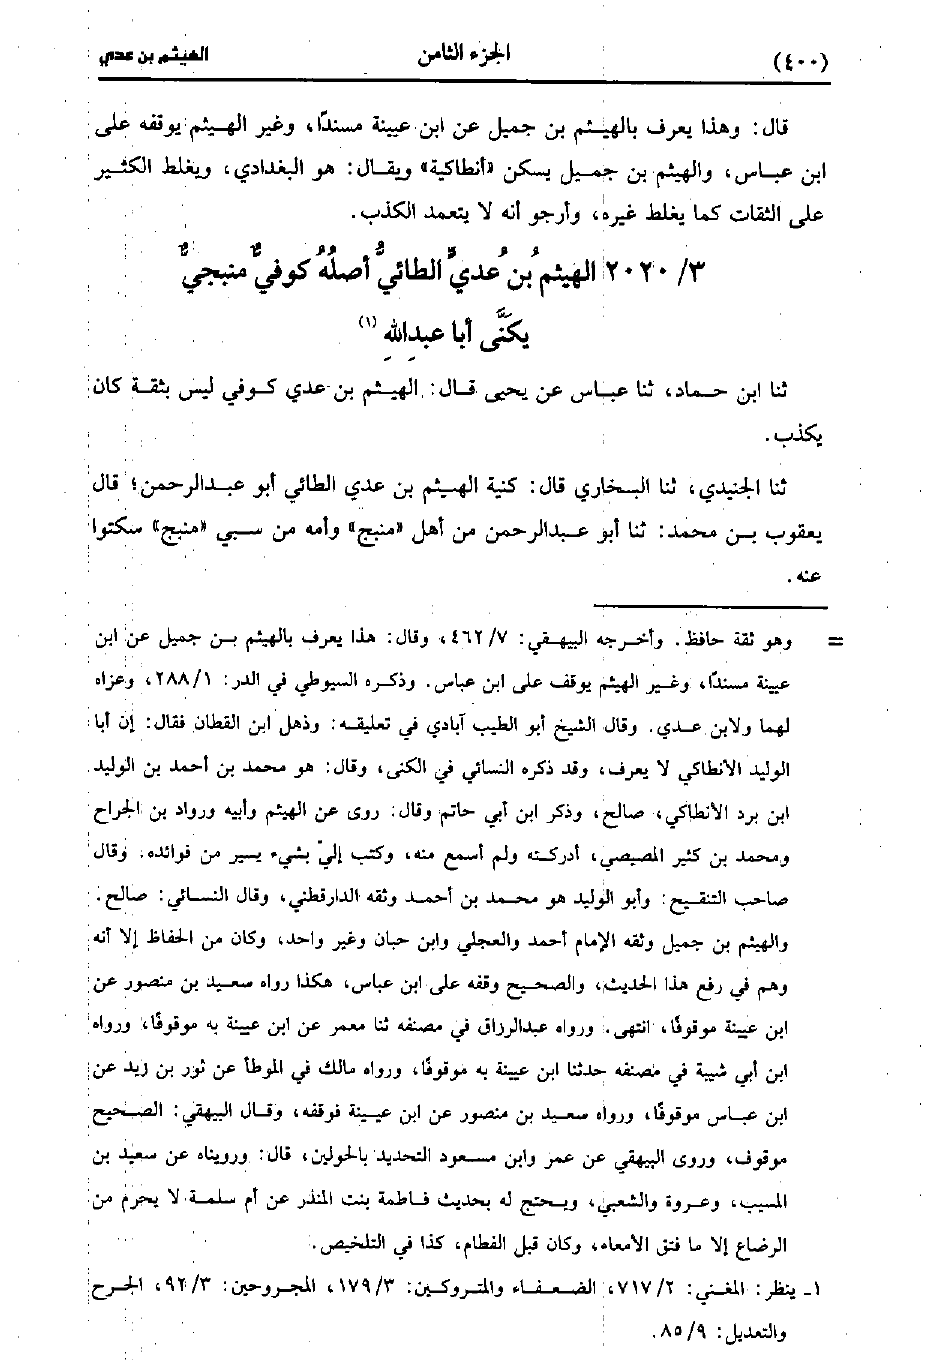 (٤٠٠) الجزء الثامن الهيثم بن عدي
قال: وهذا يعرف بالهيثم بن جميل عن ابن عيينة مسندًا، وغير الهيثم يوقفه على
ابن عباس، والهيثم بن جميل يسكن «أنطاكية» ويقال: هو البغدادي، ويغلط الكثير
على الثقات كما يغلط غيره، وأرجو أنه لا يتعمد الكذب.
٣/ ٢٠٢٠ الهيثمُ بنُ عُديٍّ الطائيُّ أصلُهُ كوفيٌّ منبجيٌّ
يكَنَّى أبا عبدِاللهِ (١)
ثنا ابن حماد، ثنا عباس عن يحيى قال: الهيثم بن عدي كوفي ليس بثقة كان
يكذب.
ثنا الجنيدي، ثنا البخاري قال: كنية الهيثم بن عدي الطائي أبو عبدالرحمن؛ قال
يعقوب بن محمد: ثنا أبو عبدالرحمن من أهل «منبج» وأمه من سبي «منبج» سكتوا
عنه.
= وهو ثقة حافظ. وأخرجه البيهقي: ٤٦٢/٧، وقال: هذا يعرف بالهيثم بن جميل عن ابن
عيينة مسندًا، وغير الهيثم يوقف على ابن عباس. وذكره السيوطي في الدر: ٢٨٨/١، وعزاه
لهما ولابن عدي. وقال الشيخ أبو الطيب آبادي في تعليقه: وذهل ابن القطان فقال: إن أبا
الوليد الأنطاكي لا يعرف، وقد ذكره النسائي في الكنى، وقال: هو محمد بن أحمد بن الوليد
ابن برد الأنطاكي، صالح، وذكر ابن أبي حاتم وقال: روى عن الهيثم وأبيه ورواد بن الجراح
ومحمد بن كثير المصيصي، أدركته ولم أسمع منه، وكتب إليّ بشيء يسير من فوائده. وقال
صاحب التنقيح: وأبو الوليد هو محمد بن أحمد وثقه الدارقطني، وقال النسائي: صالح.
والهيثم بن جميل وثقه الإمام أحمد والعجلي وابن حبان وغير واحد، وكان من الحفاظ إلا أنه
وهم في رفع هذا الحديث، والصحيح وقفه على ابن عباس، هكذا رواه سعيد بن منصور عن
ابن عيينة موقوفًا، انتهى. ورواه عبدالرزاق في مصنفه ثنا معمر عن ابن عيينة به موقوفًا، ورواه
ابن أبي شيبة في مصنفه حدثنا ابن عيينة به موقوفًا، ورواه مالك في الموطأ عن ثور بن زيد عن
ابن عباس موقوفًا، ورواه سعيد بن منصور عن ابن عيينة فوقفه، وقال البيهقي: الصحيح
موقوف، وروى البيهقي عن عمر وابن مسعود التحديد بالحولين، قال: ورويناه عن سعيد بن
المسيب، وعروة والشعبي، ويحتج له بحديث فاطمة بنت المنذر عن أم سلمة لا يحرم من
الرضاع إلا ما فتق الأمعاء، وكان قبل الفطام، كذا في التلخيص.
١- ينظر: المغني: ٧١٧/٢، الضعفاء والمتروكين: ١٧٩/٣، المجروحين: ٩٢/٣، الجرح
والتعديل: ٨٥/٩.